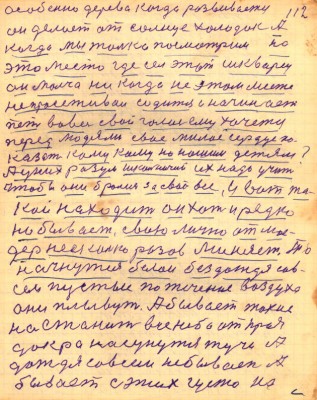 112
особенно дерева когда розвываету
он делает от солнце холодок А
когда мы толка посмотрим по
это место где сел этот шкворец
он молча ни когда не этом месте
садитца начинает
петь вовес свой голос ему хочету
перед людями свое милое сердце по-
казат Кому Кому но нашим детям?
А у них разум их надо учит
чтобы они брали за своё все, И вот та-
кой находит он хот и редко
но бывает, свою лично от мо-
разов Меняет. То
начнутся белои без дождя сов-
сем пустые по течение воздуха
они плывут. А бывает такие
настанит все небо от края
до кра насунутся тучи А
дождя совсем небывает А
бывает с этих густо на